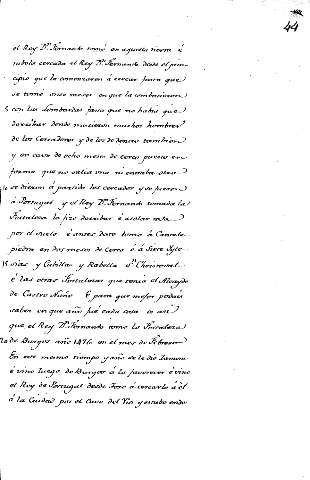 44
el Rey Dn. Fernando tomó en aquesta tierra é
túbolo cercada el Rey Dn. Fernando desde el prin-
cipio que la comenzaron á cercar para que
se tomó once meses en que la combatieron
5 con las lombardas fasta que no había que
derribar donde murieron muchos hombres
de los Cercadores y de los de dentro tambien
y en cavo de ocho meses de cerco puesto en
forma que no salia uno ni entraba otro
se dieron á partido los cercados y se fueron
á Portugal y el Rey Dn. Fernando tomada la
Fortaleza la fizo derribar é asolar toda
por el suelo é antes desto tomó á Cantala-
piedra en dos meses de Cerco é á Siete Ygle-
15 sias y Cubillas y Rabella
é las otras Fortalezas que tenia el Alcayde
de Castro Nuño É para que mejor podais
saber en que año fué cada cosa
que el Rey Dn. Fernando tomó la Fortaleza
20 de Burgos año 1476 en el mes de Febrero
En este mesmo tiempo y año se le dió Zamora
é vino luego de Burgos á la favorecer é vino
el Rey de Portugal desde Toro á cercarlo á él
á la Ciudad por el Cavo del Rio y estubo endo